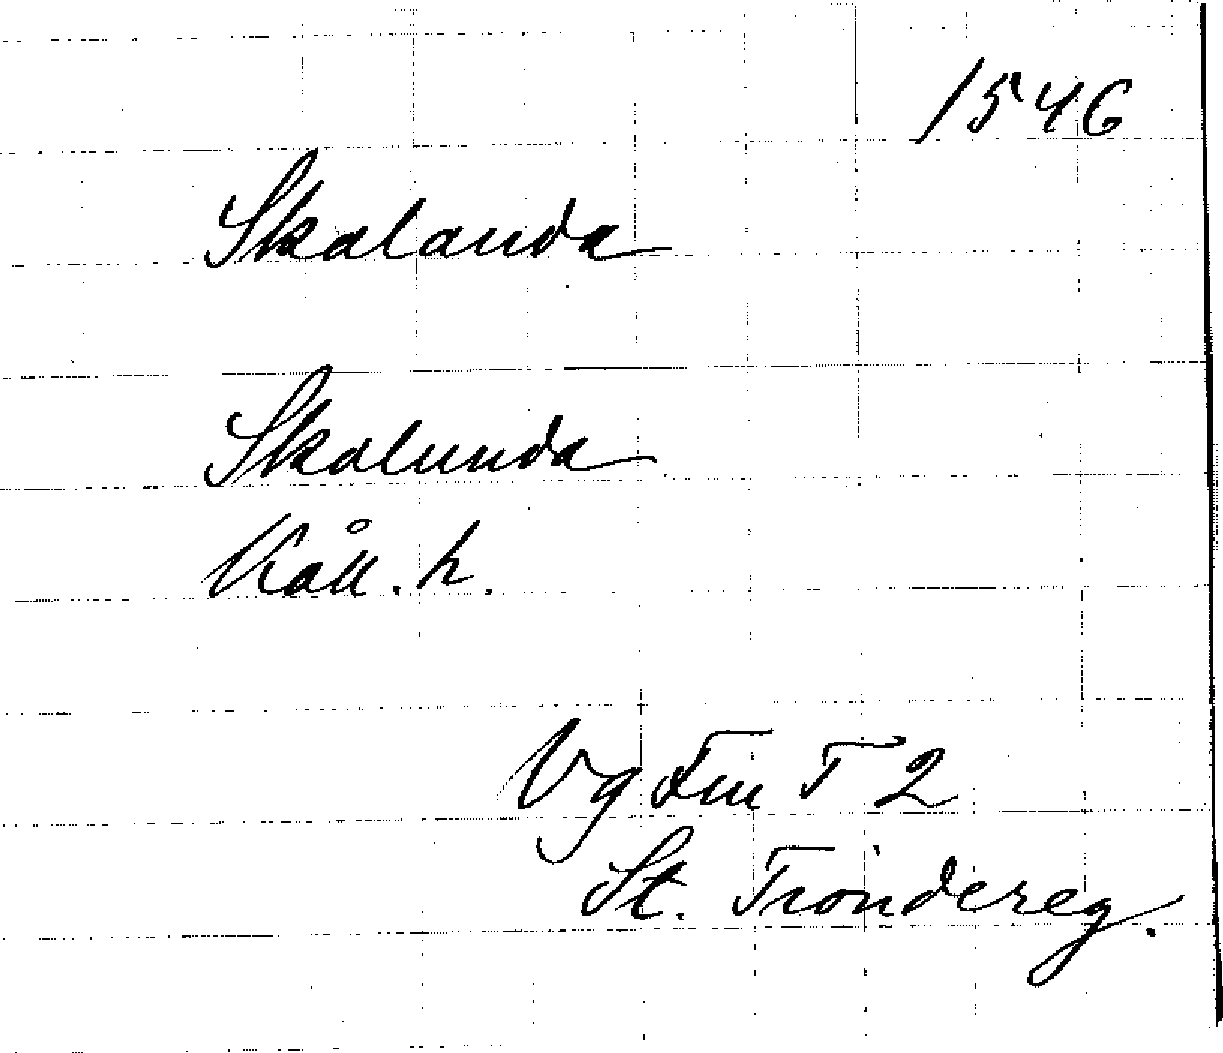 1546
Skalanda
Skalunda
Kåll. h.
Vg Fru T 2
St. Tiondereg.